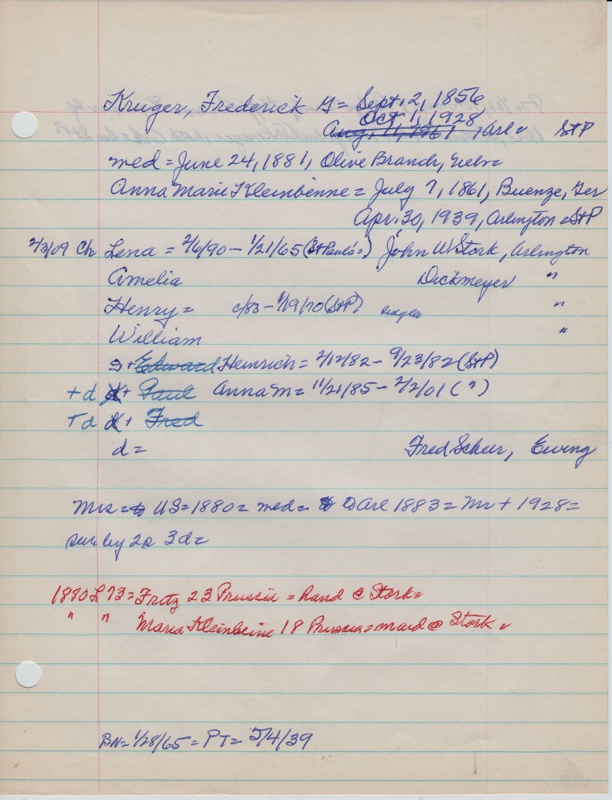 Kruger, Frederick G = Sept. 2, 1856
Oct. 1, 1928
Aug. 11, 1961, Arl = StP
med = June 24, 1881, Olive Branch, Neb =
Anna Marie Kleinbenne = July 7, 1861, Buenze, Ger
Apr. 30, 1939, Arlington = StP
2/3/09 Ch Lena = 2/6/90 - 1/21/65 (StPaul's =) John W Stork, Arlington
Amelia Dickmeyer "
Henry = c/83 - 1/19/70 (StP) "
William "
s+ Edward Heinrich = 2/12/82 - 9/23/82 (StP)
+d d+ Paul Anna M = 11/21/85 - 2/2/01 (")
+d d+ Fred
d = Fred Scheer, Ewing
Mrs = US = 1880 = med = Arl 1883 = Mr + 1928 =
sur by 2s 3d =
1880 L 73 = Fritz 23 Prussia = hand @ Stork =
" " Maria Kleinbeine 18 Prussia = maid @ Stork =
BN = 1/28/65 = PT = 5/4/39